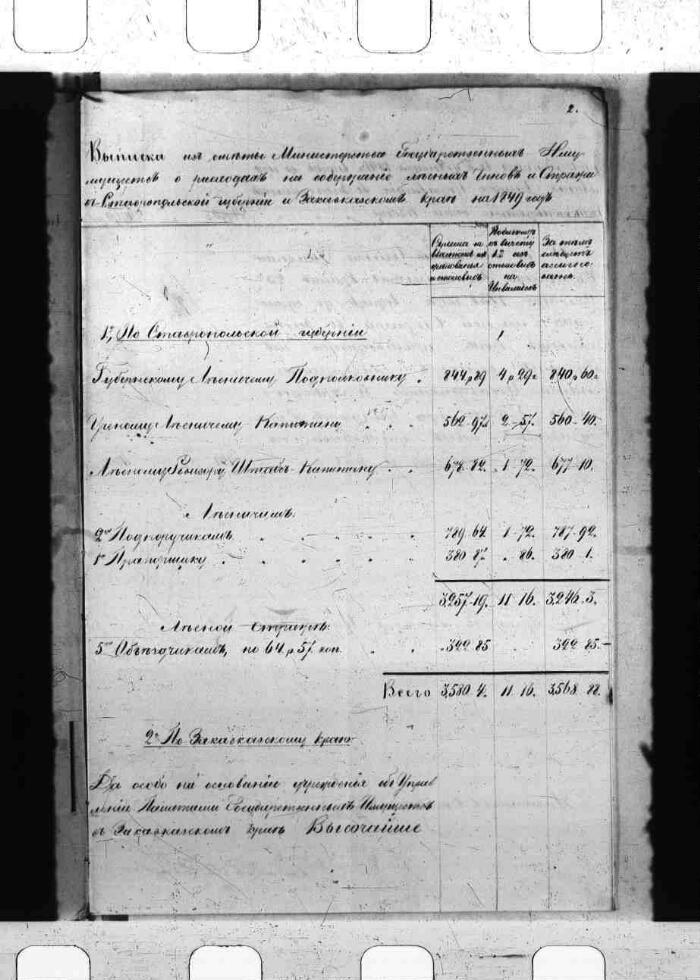 2.
Выписка изъ смѣты Министерства Государственныхъ Иму-
муществъ о расходахъ на содержаніе лѣсныхъ Чиновъ и Стражи
въ Ставропольской губерніи и Закавказскомъ краѣ на 1849 годъ
Сумма на жалованье и столовыхъ
къ вычету 1% изъ столовыхъ на Инвалидовъ
За тѣмъ слѣдуетъ ассигно-
1, По Ставропольской губерніи
Губернскому Лѣсничему Подполковнику . 844 р 89 4 р 29 к 840 р 60 к
Ученому Лѣсничему Капитану . . . 562 97 2 57. 560 40.
Лѣсному Ревизору Штабсъ-Капитану . . 678 82. 1 72. 677 10.
Лѣсничимъ
2мъ Подпоручикамъ . . . . . 789 64. 1 72. 787 92.
1му Прапорщику . . . . . 380 87 . 86. 380 1.
3,257 19. 11 16. 3,246 3.
Лѣсной Стражѣ.
5ти Объѣздчикамъ, по 64 р 57 коп. . . 322 85 . . 322 85.
Всего 3,580 4. 11 16. 3,568 88.
2е По Закавказскому краю
Да особо на основаніи учрежденія объ Управ
леніи Палатами Государственныхъ Имуществъ
въ Закавказскомъ краѣ Высочайше